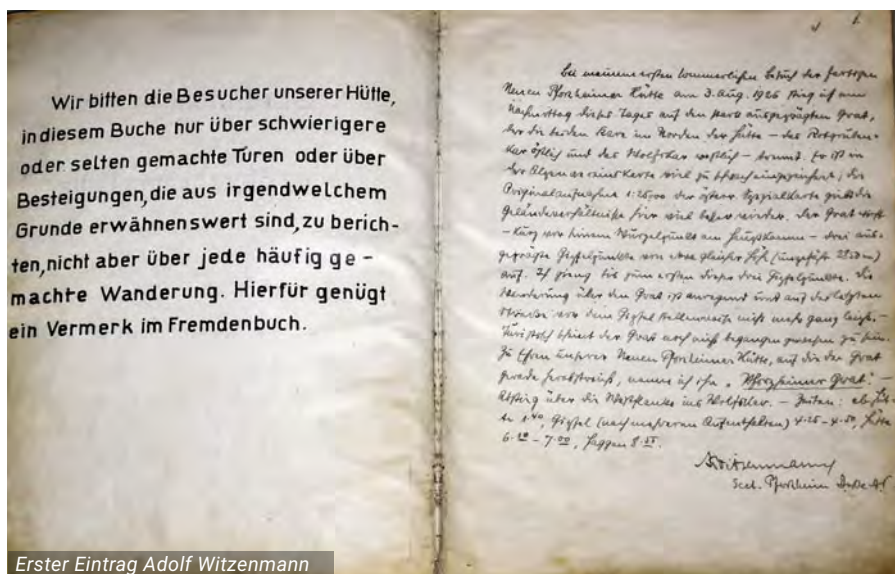 Wir bitten die Besucher unserer Hütte,
in diesem Buche nur über schwierigere
oder selten gemachte Turen oder über
Besteigungen, die aus irgendwelchem
Grunde erwähnenswert sind, zu berich-
ten, nicht aber über jede häufig ge-
machte Wanderung. Hierfür genügt
ein Vermerk im Fremdenbuch.
1.
Bei meinem ersten sommerlichen Besuch der fertigen
Neuen Pforzheimer Hütte am 3. Aug. 1926 stieg ich am
Nachmittag dieses Tages auf den stark ausgeprägten Grat,
der die beiden Kare im Norden der Hütte – das Rotgruben-
kar östlich und das Wolfskar westlich – trennt. Er ist in
der Alpenvereinskarte viel zu schwach eingezeichnet; die
Originalaufnahme 1:25000 der österr. Spezialkarte gibt die
Geländeverhältnisse hier viel besser wieder. Der Grat weist
– kurz vor seinem Wurzelpunkt am Hauptkamm – drei aus-
geprägte Gipfelpunkte von etwa gleicher Höhe (ungefähr m)
auf. Ich ging bis zum ersten dieser drei Gipfelpunkte. Die
Wanderung über den Grat ist anregend und auf der letzten
Strecke vor dem Gipfel stellenweise nicht mehr ganz leicht. –
Turistisch scheint der Grat noch nicht begangen gewesen zu sein.
Zu Ehren unserer Neuen Pforzheimer Hütte, auf die der Grat
gerade herabstreicht, nenne ich ihn „Pforzheimer Grat“. –
Abstieg über die Westflanke ins Wolfskar. – Zeiten: ab Hüt-
te 1.40, Gipfel (nach mehreren Aufenthalten) 4.25 – 4.50, Hütte
6.20 – 7.00, 8.55.
AWitzenmann
Sect. Pforzheim
Erster Eintrag Adolf Witzenmann